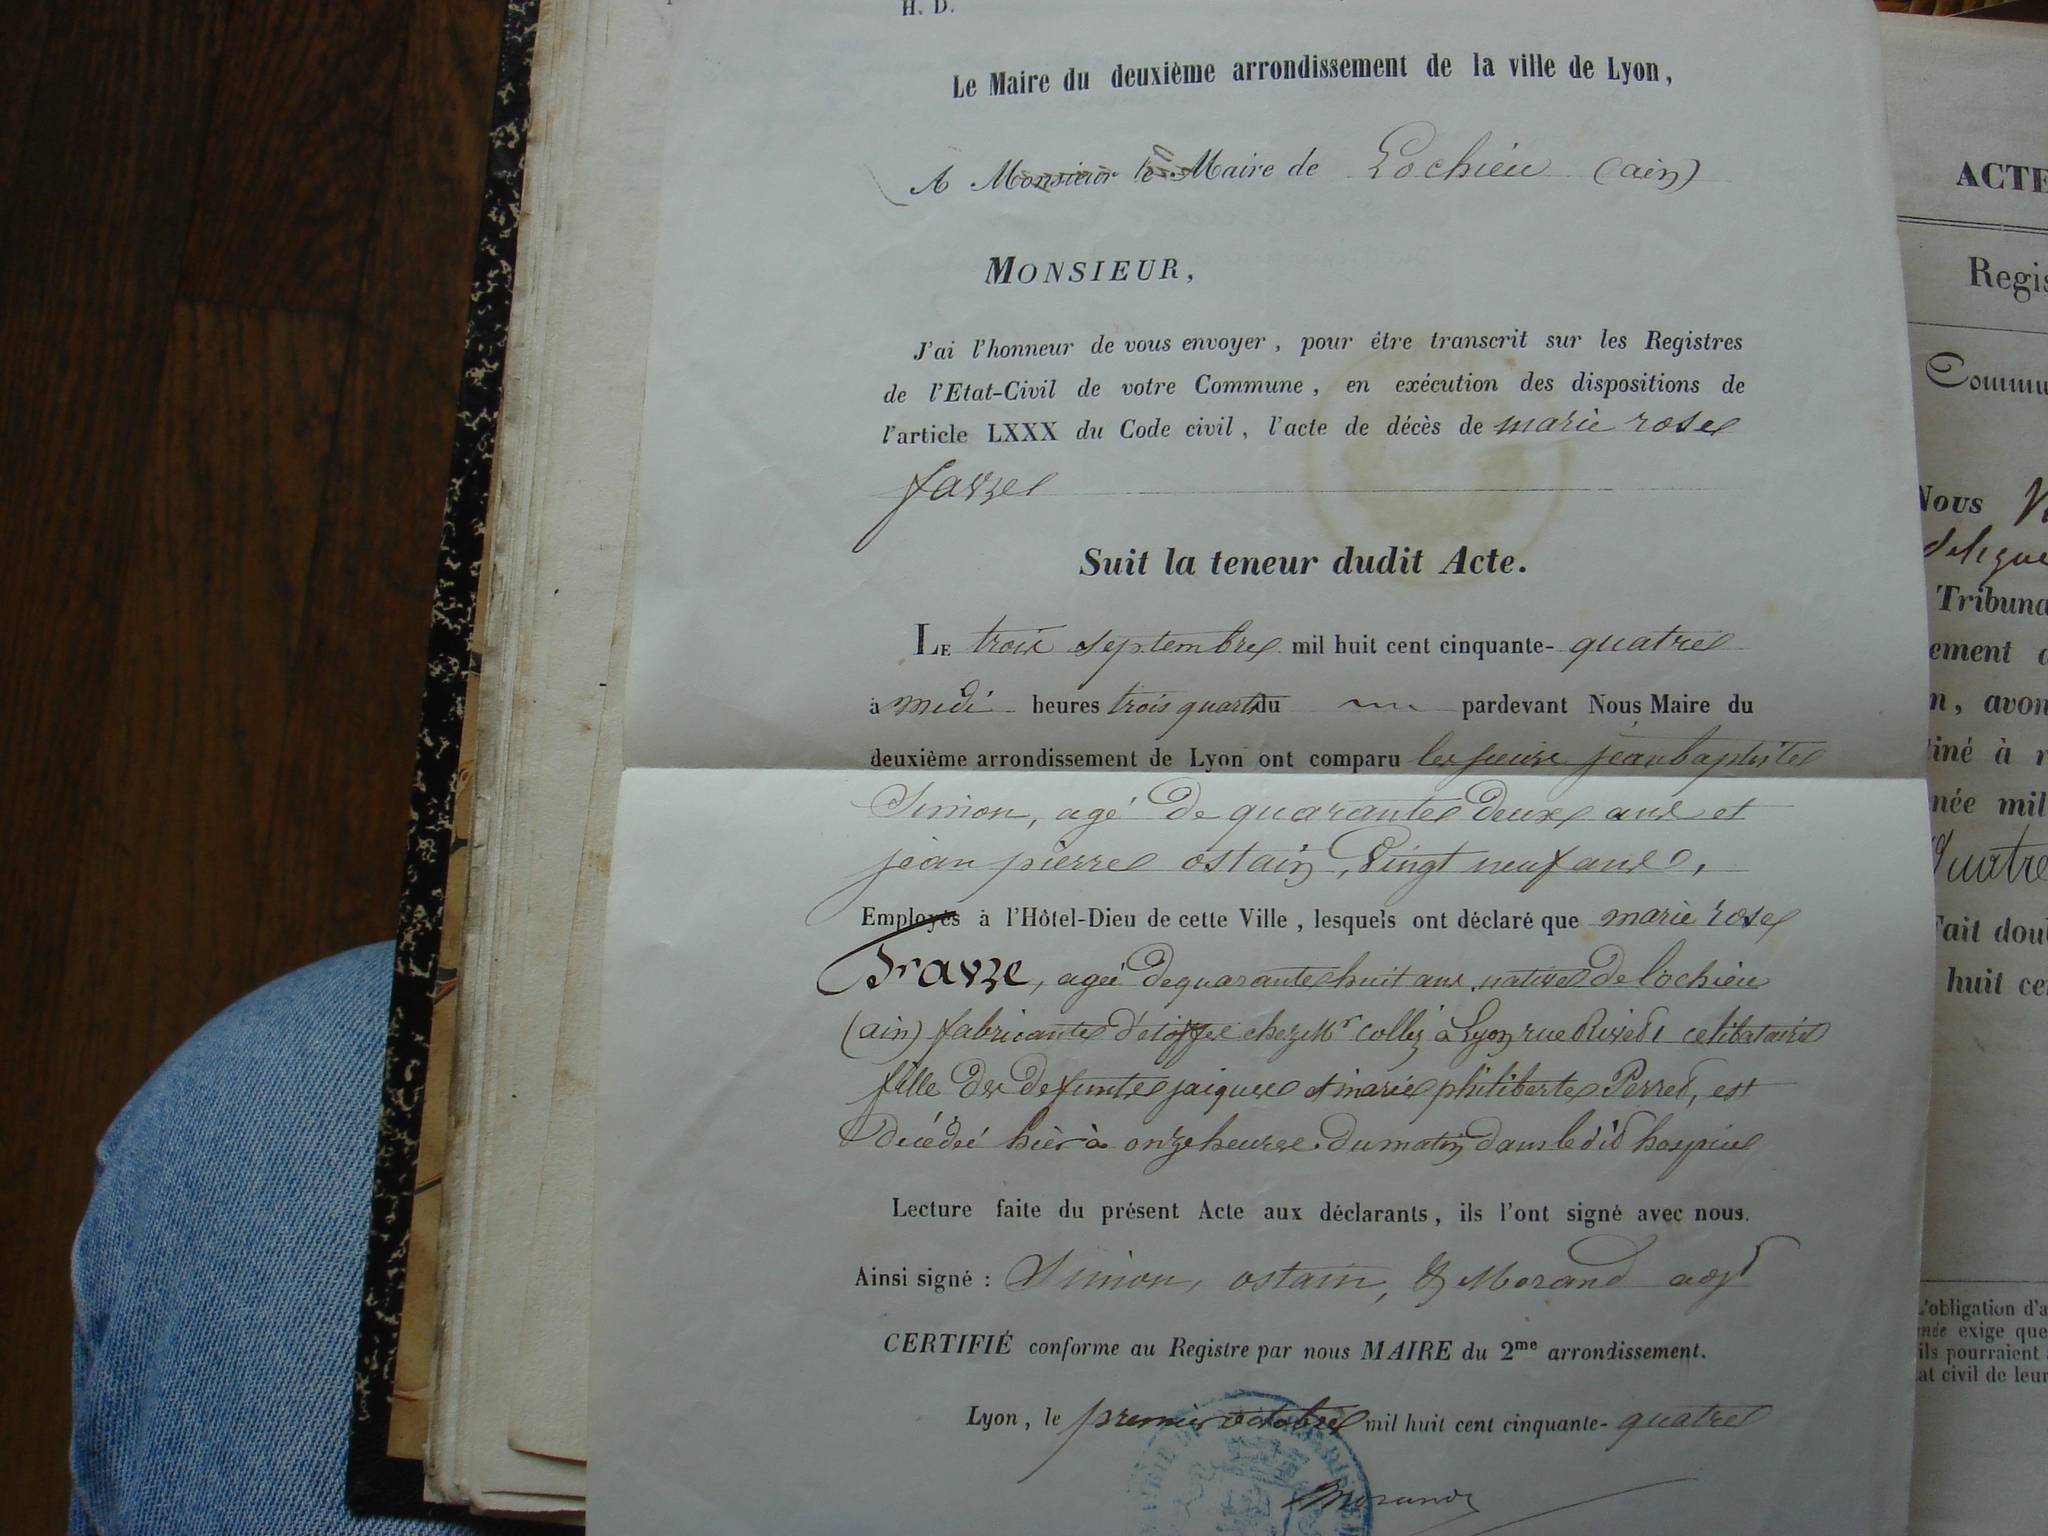 H. D.
Le Maire du deuxième arrondissement de la ville de Lyon,
A Monsieur le Maire de Lochieu (ain)
MONSIEUR,
J'ai l'honneur de vous envoyer, pour être transcrit sur les Registres
de l'Etat-Civil de votre Commune, en exécution des dispositions de
l'article LXXX du Code civil, l'acte de décès de marie rose
favre
Suit la teneur dudit Acte.
LE trois septembre mil huit cent cinquante- quatre
à midi heures trois quarts du pardevant Nous Maire du
deuxième arrondissement de Lyon ont comparu les sieurs jean baptiste
Simon, agé de quarante deux ans et
jean pierre ostain, vingt neuf ans,
Employés à l'Hôtel-Dieu de cette Ville, lesquels ont déclaré que marie rose
Favre, agée de quarante huit ans, native de lochieu
(ain) fabricante d'etoffes chez Mr à Lyon rue celibataire
fille des defunts jaques et marie philiberte Perret, est
décédée hièr à onze heures du matin dans le dit hospice
Lecture faite du présent Acte aux déclarants, ils l'ont signé avec nous.
Ainsi signé : Simon, ostain, & Morand adjt
CERTIFIÉ conforme au Registre par nous MAIRE du 2me arrondissement.
Lyon, le premier octobre mil huit cent cinquante- quatre
Morand
ACTE
Regis
Commu
Nous
Tribuna
ement
n, avon
tiné à r
née mil
Quatre
Fait dou
huit ce
L'obligation d'a
née exige que
ils pourraient
at civil de leur